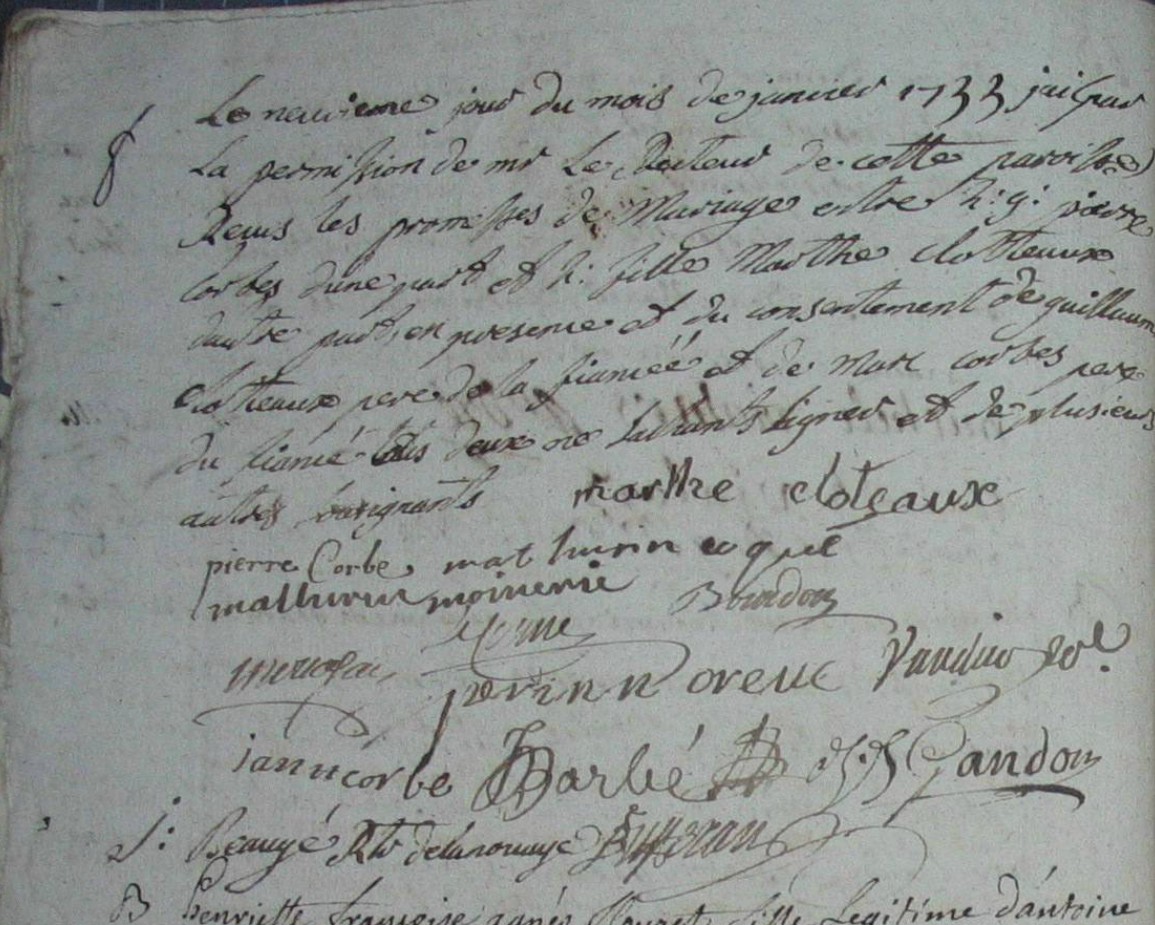 Le neuvieme jour du mois de janvier 1733 jai par
la permission de mr Le Recteur de cette paroisse
Recus les promesses de Mariage entre h: g: pierre
Corbes dune part et h: fille Marthe Clotteaux
dautre part, en presence et du consentement de guillaume
Clotteaux pere de la fiancée et de Marc Corbes pere
du fiancé tous deux ne sachants signer et de plusieurs
autres soussignants marthe cloteaux
pierre Corbe, mathurin coque
mathurin moinerie Bourdon
perinn oreue
iann corbe Barbé Gandon
S: Beaugé
B henriette françoise agnés fille Legitime d'antoine